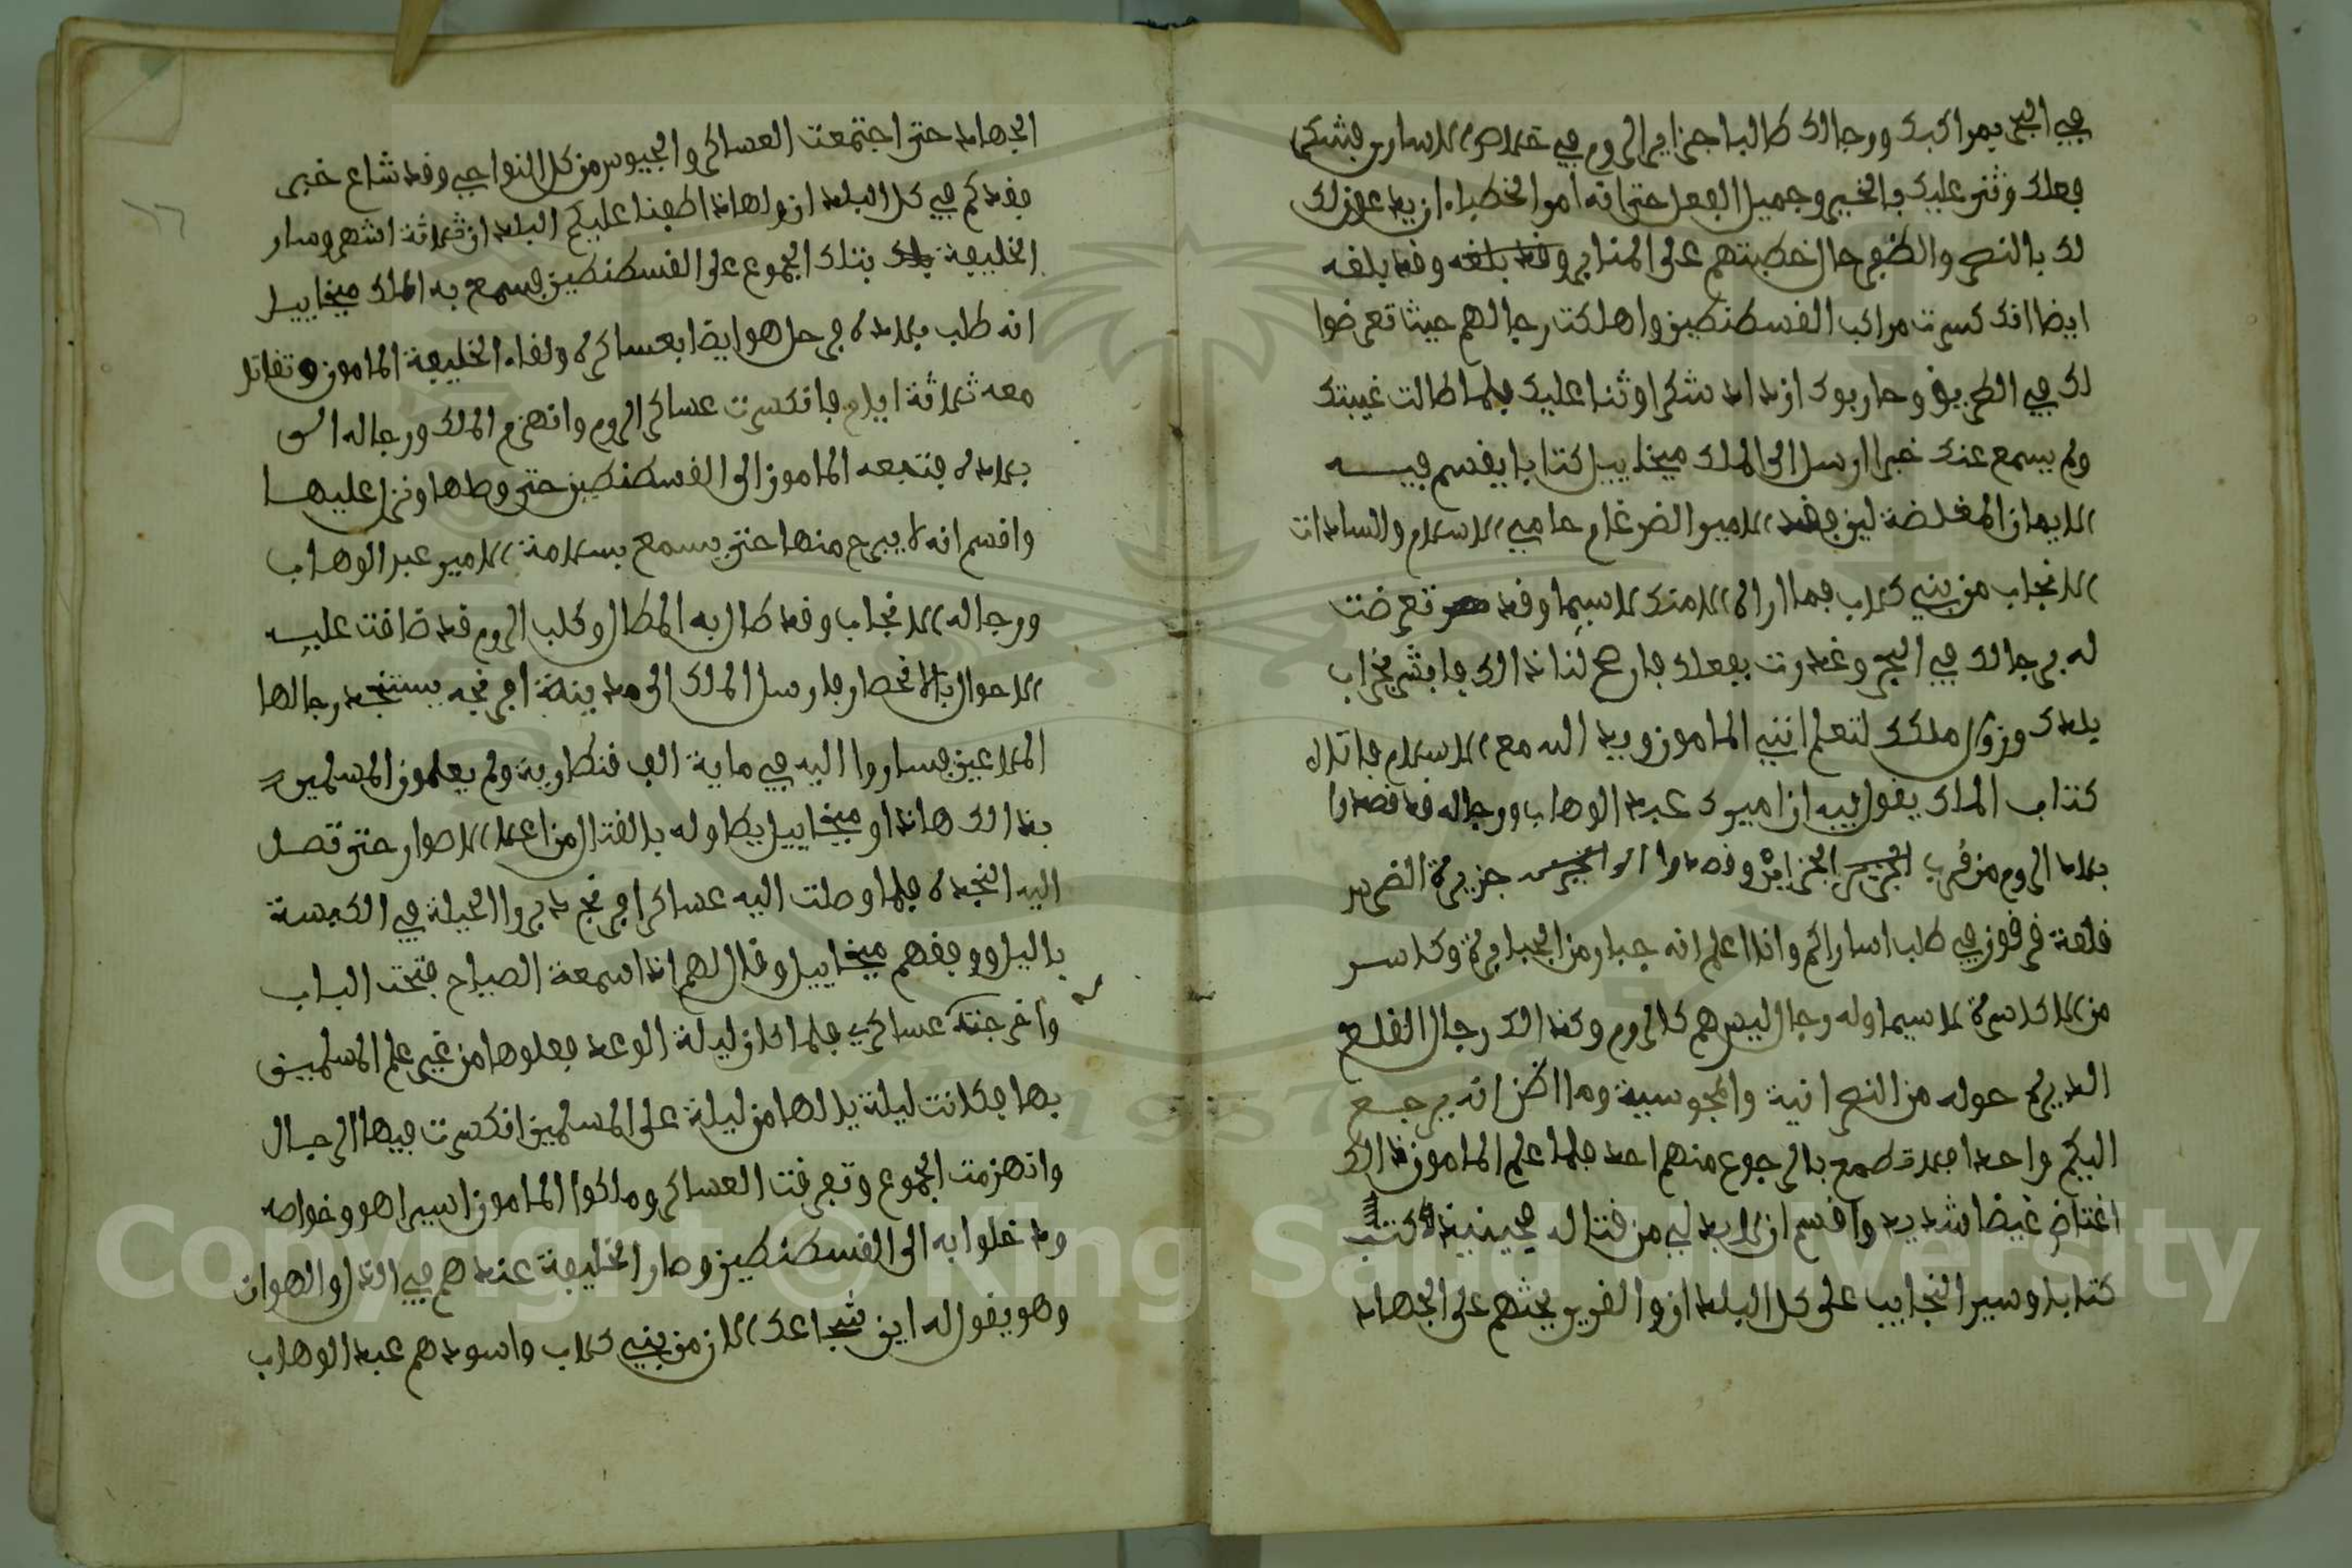 في البحر بمراكبك ورجالك طالبا جزاير الروم في خلاص الاسارى فشكر
فعلك وثنى عليك بالخير وجميل الفعل حتى انه امر الخطباء ان يدعون لك
لك بالنصر والظفر حال خطبتهم على المنابر وقد بلغه وقد بلغه
ايضا انك كسرت مراكب القسطنطين واهلكت رجالهم حيث تعرضوا
لك في الطريق وحاربوك ازداد شكرا وثنا عليك فلما طالت غيبتك
ولم يسمع عنك خبرا ارسل الى الملك ميخاييل كتابا يقسم فيه
الايمان المغلضة لين فقد الامير الضرغام حامي الاسلام والسادات
الانجاب من بني كلاب فما اراه الا منك لا سيما وقد تعرضت
له برجالك في البحر وغدرت بفعلك فارح لنا ذالك فابشر بخراب
بلدك وزوال ملكك لتعلم انني المامون وبيد الله مع الاسلام فاتاه
كتاب الملك يقول فيه ان اميرك عبد الوهاب ورجاله قد قصدوا
بلاد الروم من قرب الجزاير وقصدوا جزيرة الضرس
قلعة قرقون في طلب اساراكم وانا اعلم انه جبار من الجبابرة وكاسر
من الاكاسرة لا سيما وله رجال ليس هم كالروم وكذالك رجال القلع
الديرة حوله من النصرانية والمجوسية وما اظن انه يرجع
اليكم واحدا فلا تطمع بالرجوع منهم احد فلما علم المامون ذالك
اغتاض غيضا شديد واقسم ان لا بد لي من قتاله فحينيذ كتب
كتابا وسير النجاييب على كل البلدان والقرى يحثهم على الجهاد
الجهاد حتى اجتمعت العساكر والجيوس من كل النواحي وقد شاع خبر
فقدكم في كل البلدان ولهاذا اطفنا عليكم البلدان ثلاثة اشهر وسار
الخليفة بتلك الجموع على القسطنطين فسمع به الملك ميخاييل
انه طلب بلاده فرحل هو ايضا بعساكره ولقاء الخليفة المامون وتقاتل
معه ثلاثة ايام فانكسرت عساكر الروم وانهزم الملك ورجاله الى
بلاده فتبعه المامون الى القسطنطين حتى وصلها ونزل عليها
واقسم انه لا يبرح منها حتى يسمع بسلامة الامير عبد الوهاب
ورجاله الانجاب وقد طال به المطال وكلب الروم قد ضاقت عليه
الاحوال بالانحصار فارسل الملك الى مدينة افرنجه يستنجد رجالها
الملاعين فساروا اليه في ماية الف قنطارية ولم يعلمون المسلمين
بذالك هاذا وميخاييل يطاوله بالقتال من اعلا الاصوار حتى تصل
اليه النجده فلما وصلت اليه عساكر افرنج دبروا الحيلة في الكبسة
باليل ووقفهم ميخاييل وقال لهم اذا سمعة الصياح فتحت الباب
واخرجت عساكري فلما كان ليلة الوعد فعلوها من غير علم المسلمين
بها فكانت ليلة يا لها من ليلة على المسلمين انكسرت فيها الرجال
وانهزمت الجموع وتفرقت العساكر وملكوا المامون اسيرا هو وخواصه
ودخلوا به الى القسطنطين وصار الخليفة عندهم في الذل والهوان
وهو يقول له اين شجاعك الان من بني كلاب واسودهم عبد الوهاب
Copyright © King Saud University
1957